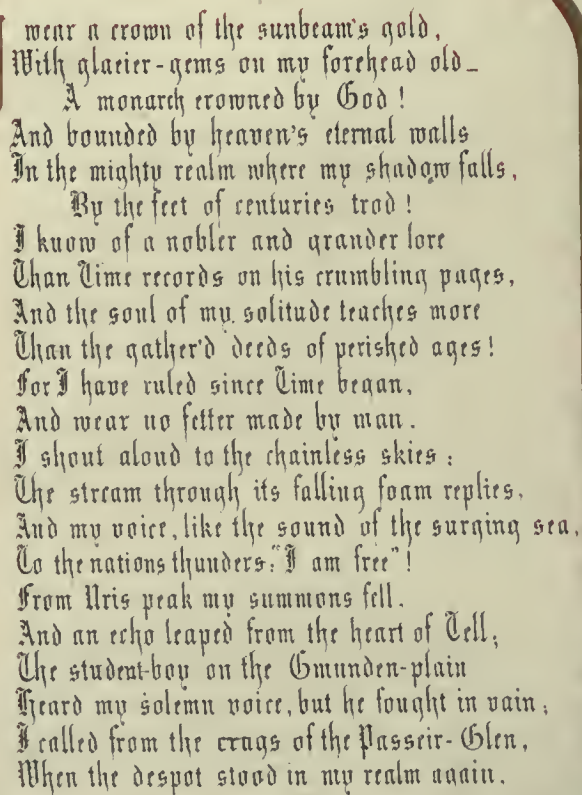 wear a crown of the sunbeam's gold,
With glacier-gems on my forehead old_
A monarch crowned by God!
And bounded by heaven's eternal walls
In the mighty realm where my shadow falls,
By the feet of centuries trod!
I know of a nobler and grander lore
Than Time records on his crumbling pages,
And the soul of my solitude teaches more
Than the gather'd deeds of perished ages!
For I have ruled since Time began,
And wear no fetter made by man.
I shout aloud to the chainless skies:
The stream through its falling foam replies,
And my voice, like the sound of the surging sea,
To the nations thunders: "I am free"!
From Uris peak my summons fell,
And an echo leaped from the heart of Tell;
The student-boy on the Gmunden-plain
Heard my solemn voice, but he fought in vain;
I called from the crags of the Passeir-Glen,
When the despot stood in my realm again.